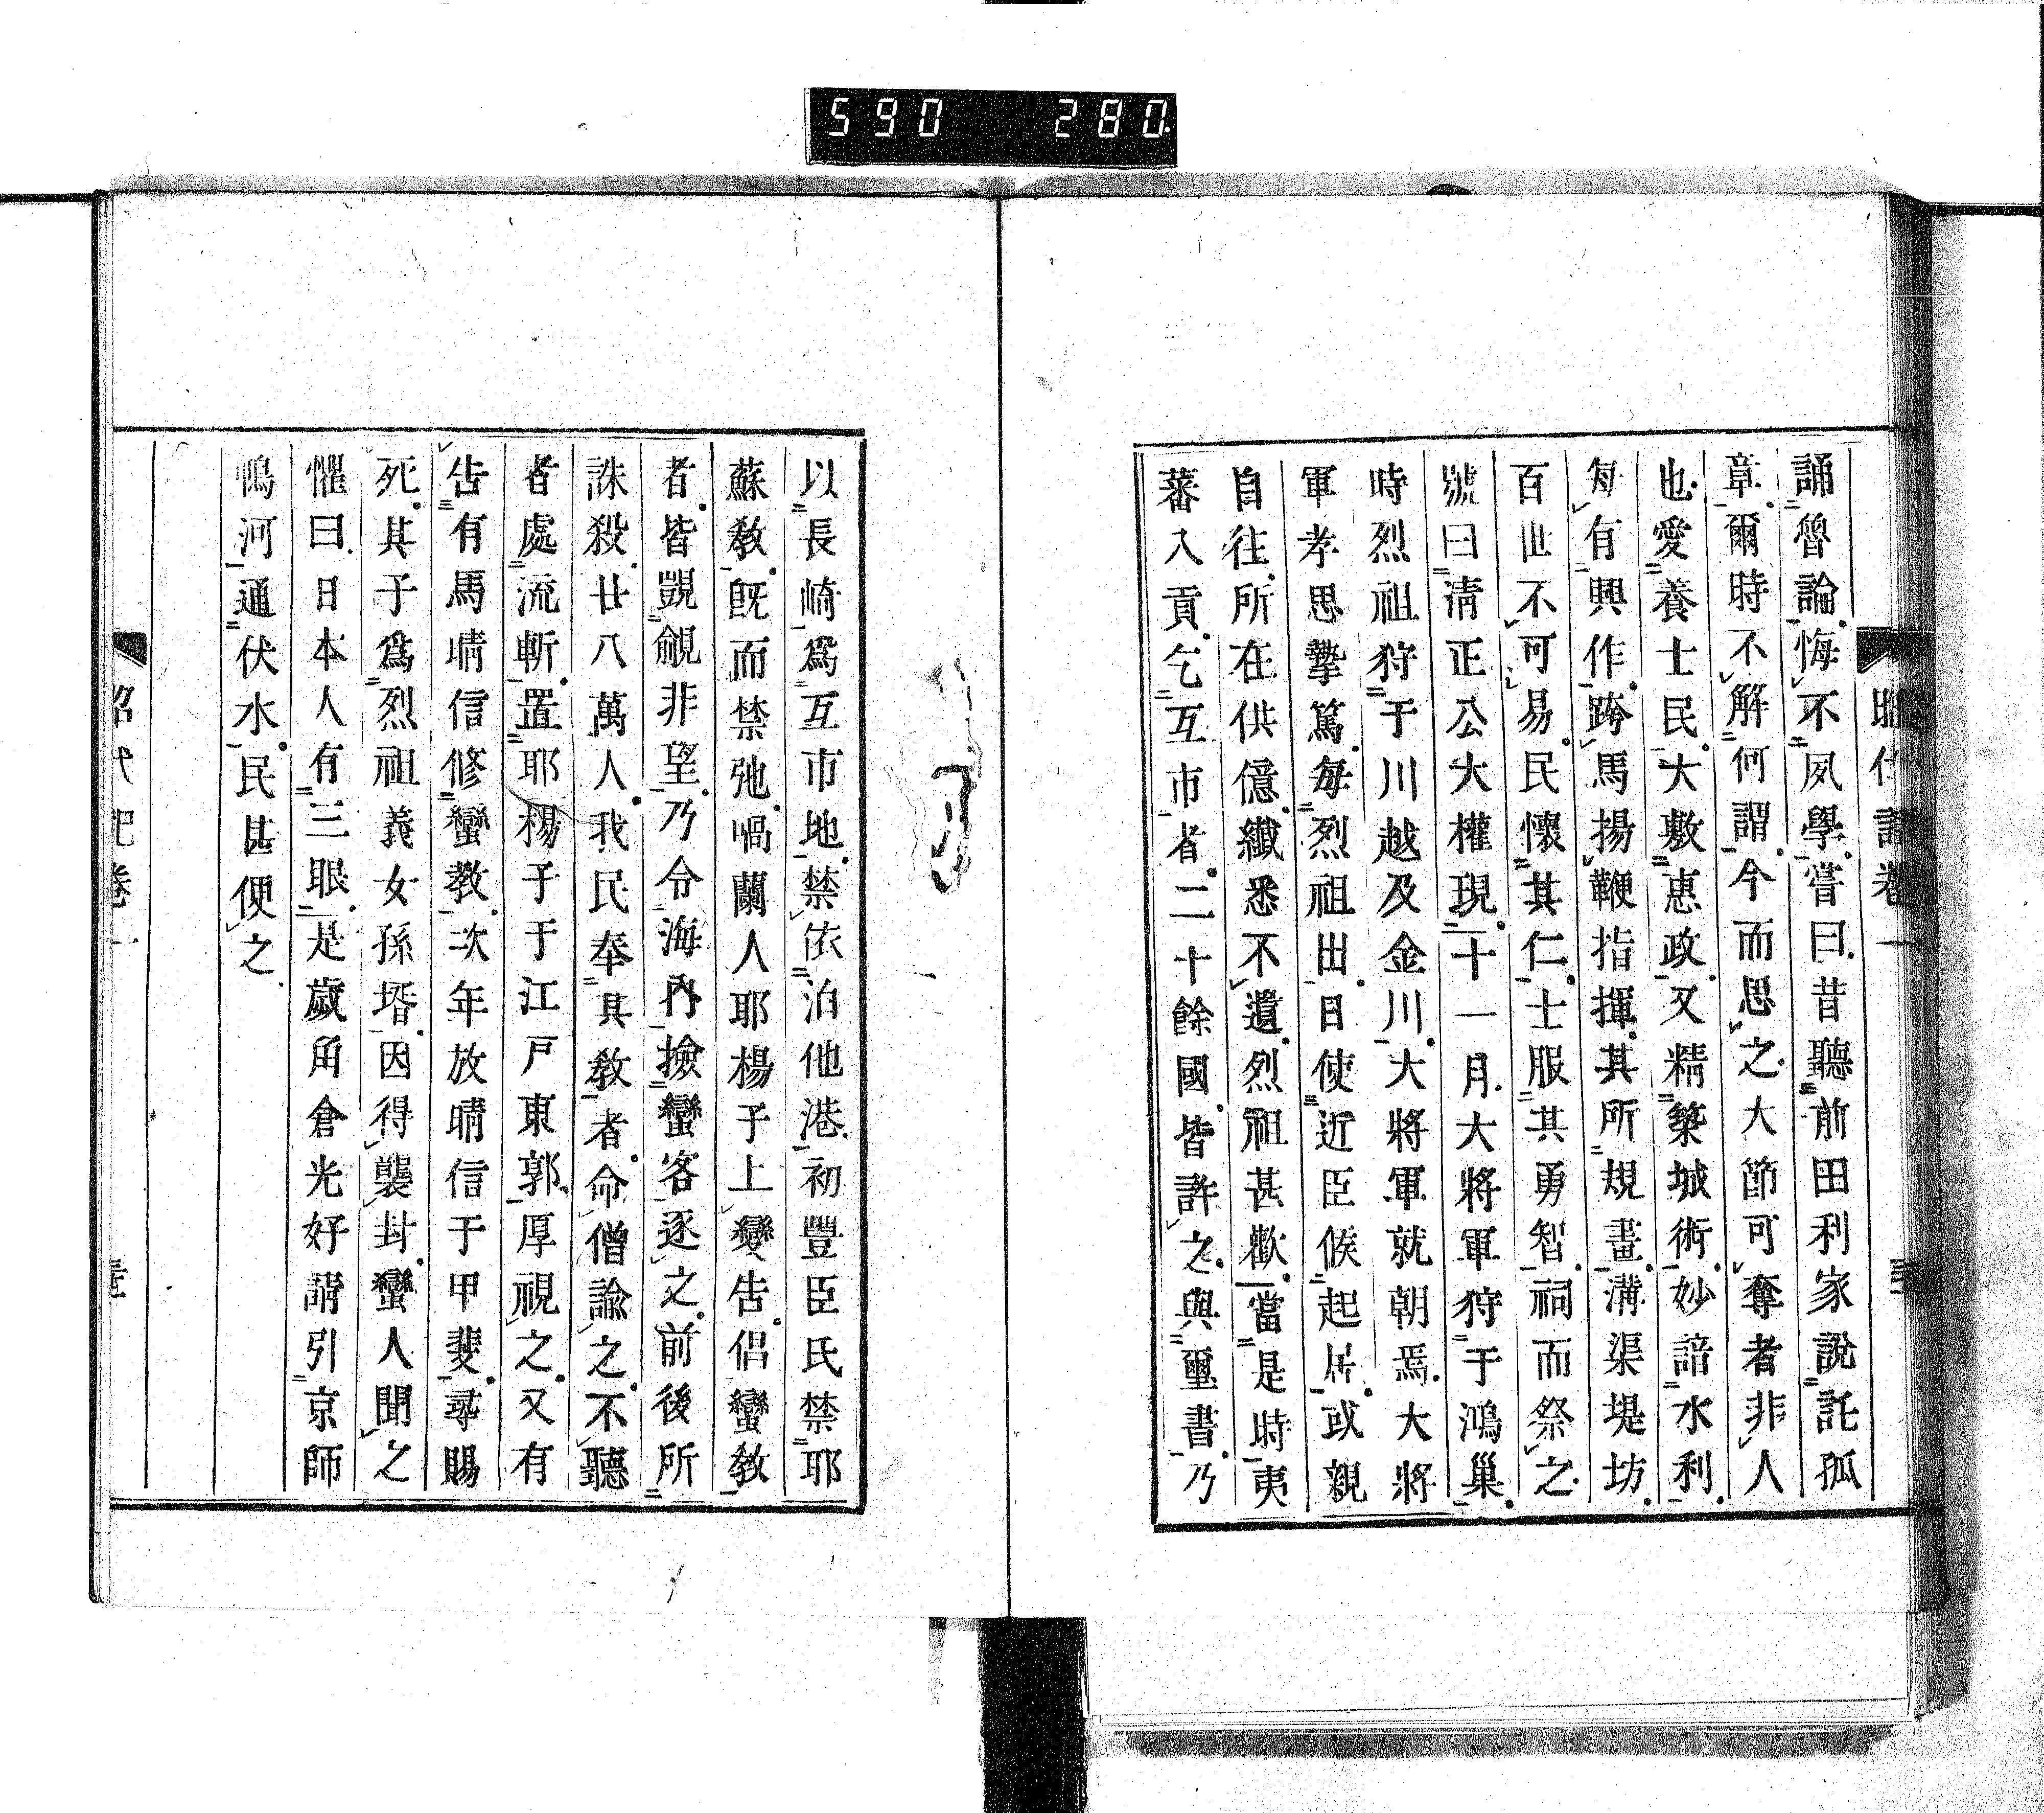 590 280
誦魯論悔不夙學嘗曰昔聽前田利家說託孤
章爾時不解何謂今而思之大節可奪者非人
也愛養士民大敷惠政又精築城術妙諳水利
每有興作跨馬揚鞭指揮其所規畫溝渠堤坊
百世不可易民懷其仁士服其勇智祠而祭之
號曰淸正公大權現十一月大將軍狩于鴻巢
時烈祖狩于川越及金川大將軍就朝焉大將
軍孝思摯篤每烈祖出日使近臣候起居或親
自往所在供億纖悉不遺烈祖甚歡當是時夷
蕃入貢乞互市者二十餘國皆許之與璽書乃
以長崎爲互市地禁依泊他港初豐臣氏禁耶
蘇敎旣而禁弛喎蘭人耶楊子上變告侶蠻敎
者皆覬覦非望乃令海內撿蠻客逐之前後所
誅殺廿八萬人我民奉其敎者命僧諭之不聽
者處流斬置耶楊子于江戸東郭厚視之又有
告有馬晴信修蠻敎次年放晴信于甲斐尋賜
死其子爲烈祖義女孫壻因得襲封蠻人聞之
懼曰日本人有三眼是歲角倉光好請引京師
鴨河通伏水民甚便之